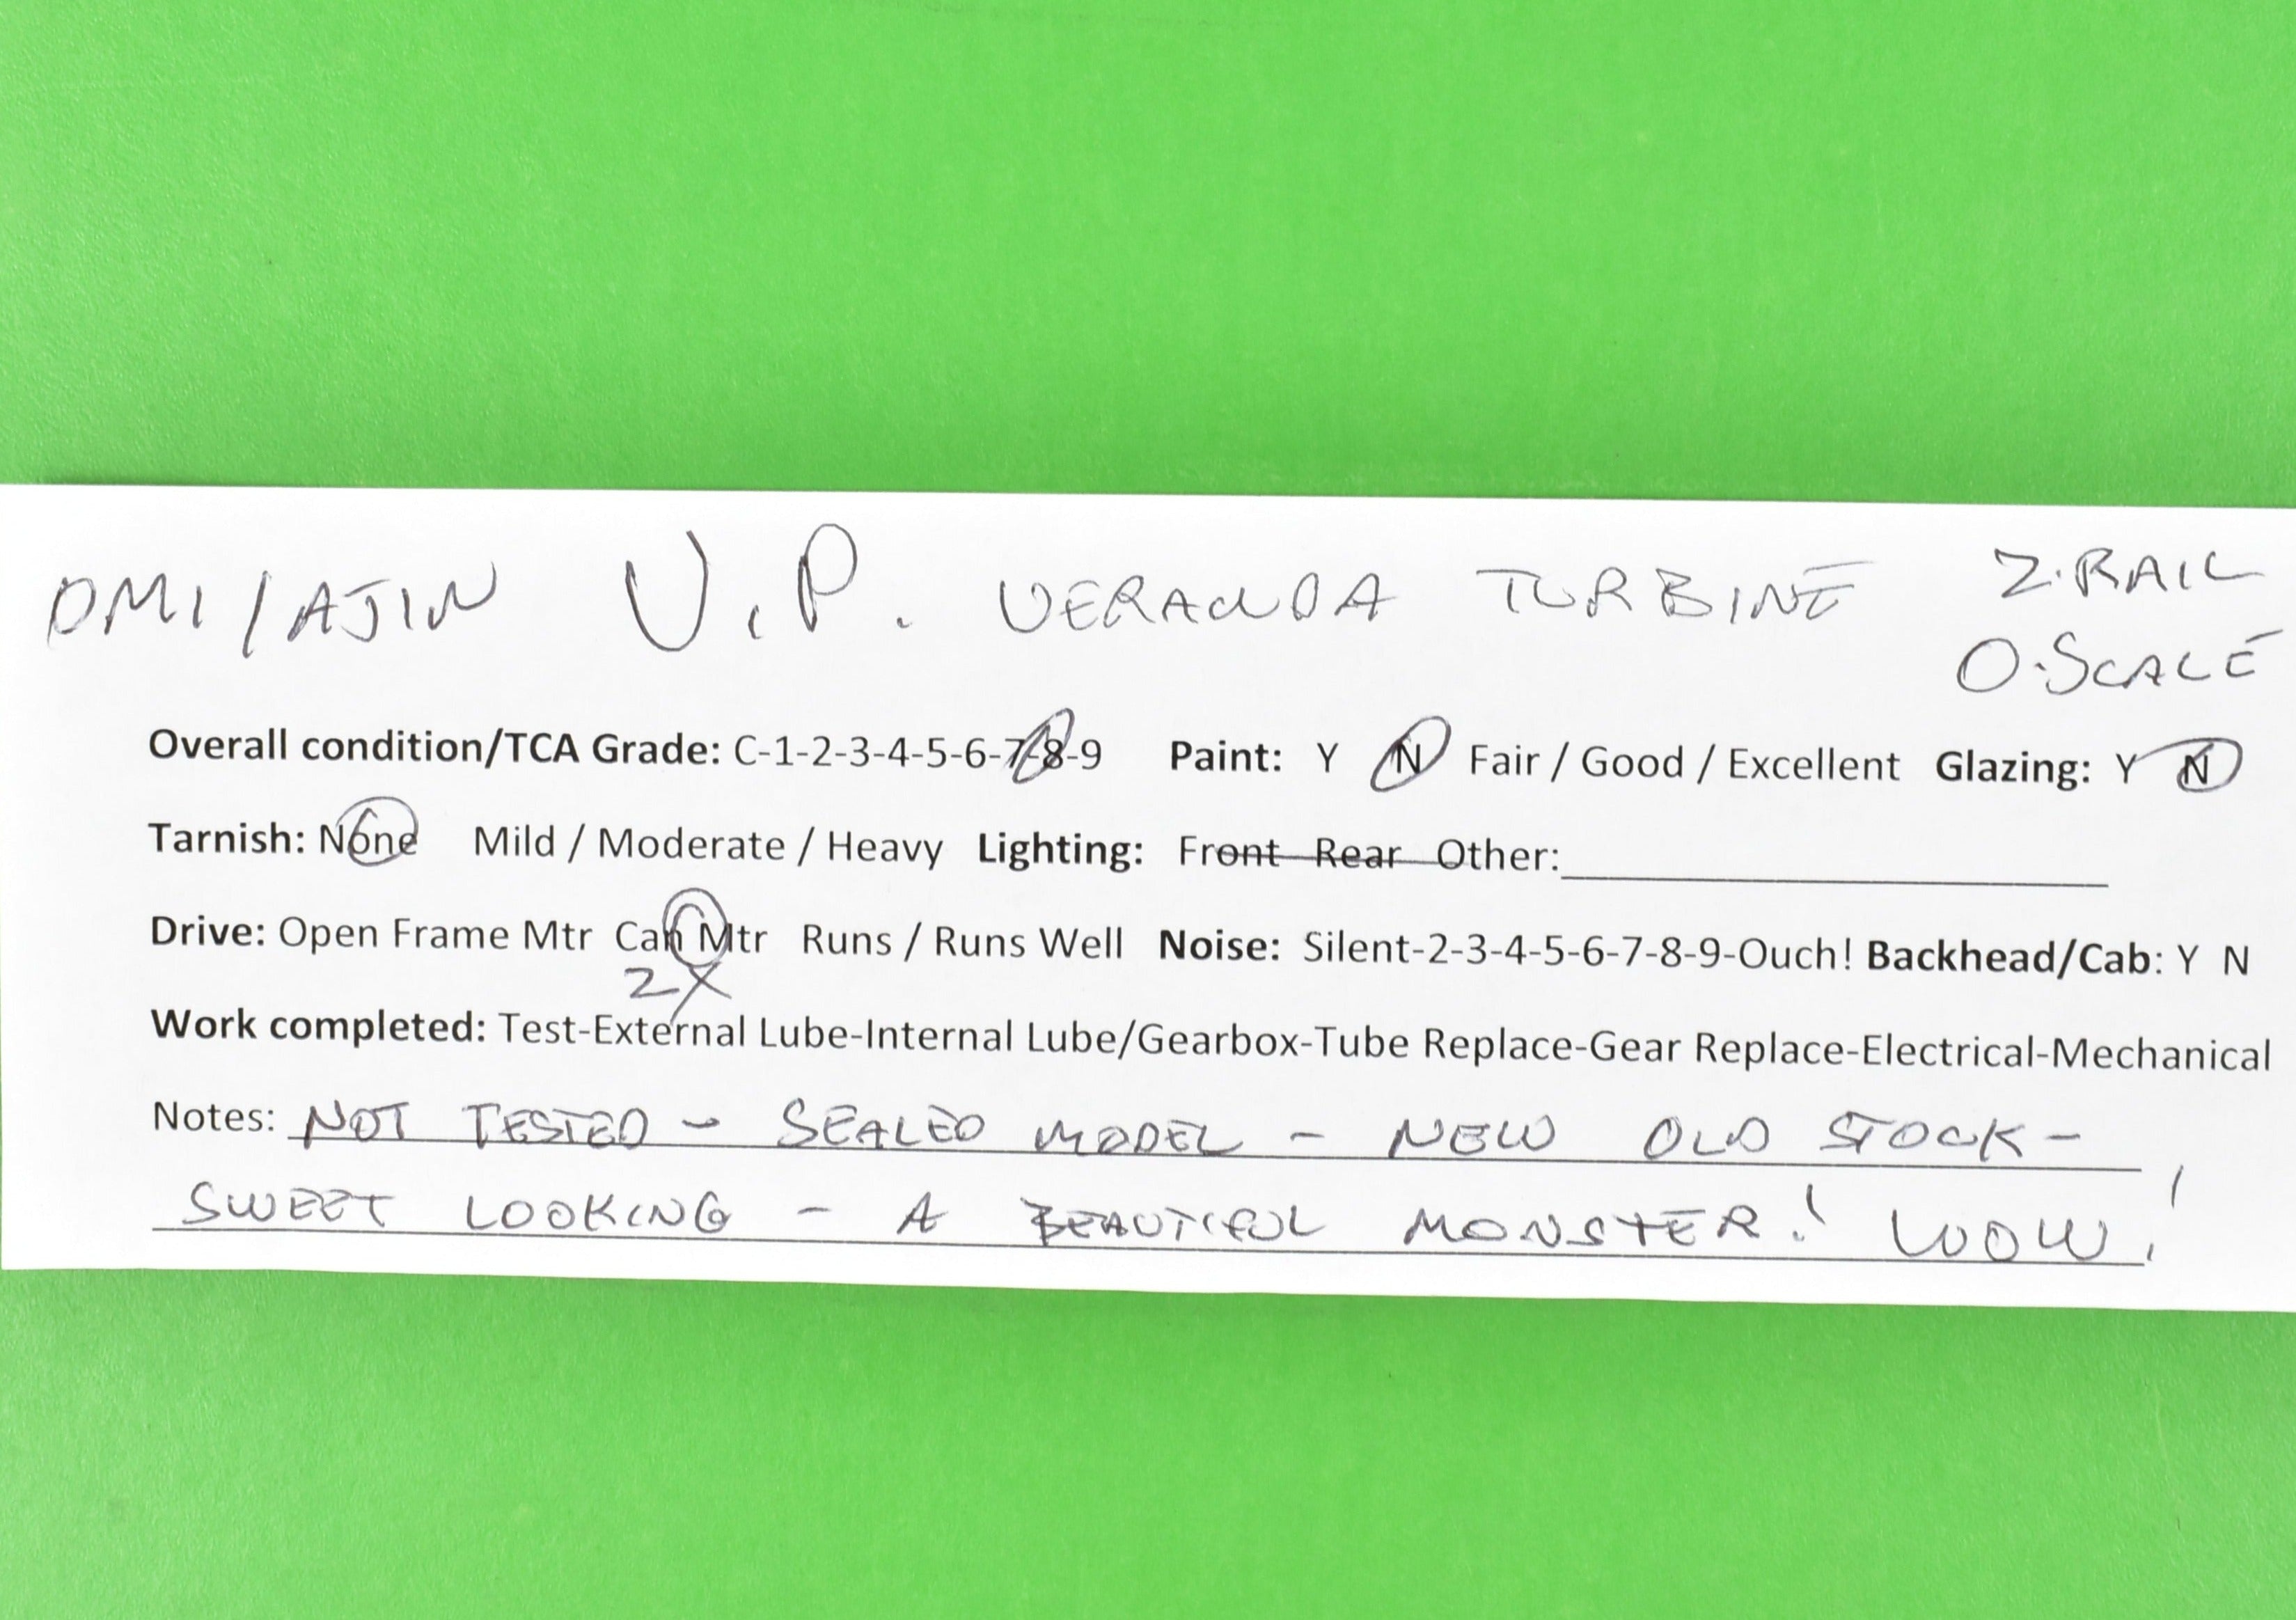 OMI/AJIN U.P. VERANDA TURBINE 2·RAIL
O·SCALE
Overall condition/TCA Grade: C-1-2-3-4-5-6-7-8-9 Paint: Y N Fair / Good / Excellent Glazing: Y N
Tarnish: None Mild / Moderate / Heavy Lighting: Front Rear Other:
Drive: Open Frame Mtr Can Mtr Runs / Runs Well Noise: Silent-2-3-4-5-6-7-8-9-Ouch! Backhead/Cab: Y N
2X
Work completed: Test-External Lube-Internal Lube/Gearbox-Tube Replace-Gear Replace-Electrical-Mechanical
Notes: NOT TESTED - SEALED MODEL - NEW OLD STOCK -
SWEET LOOKING - A BEAUTIFUL MONSTER! WOW!